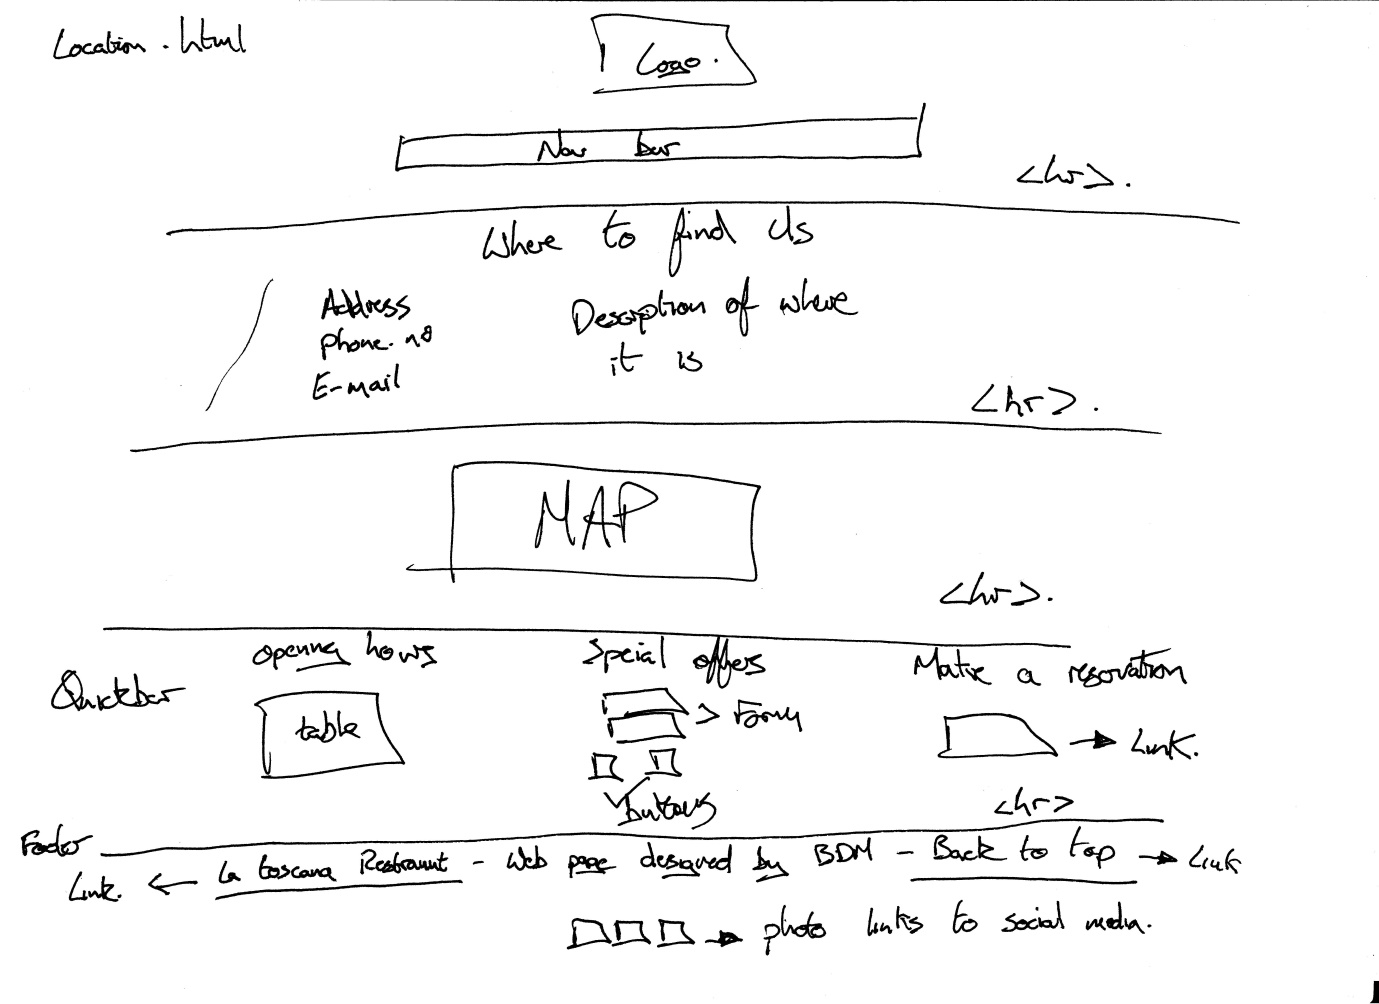 Location.html
Logo.
Nav bar
<hr>.
Where to find Us
Address
phone. no
E-mail
Description of where
it is
<hr>.
MAP
<hr>.
Quickbar
opening hours
table
Special offers
> Form
buttons
Make a reservation
→ Link.
<hr>
Footer
Link. ← La toscana Restraunt - Web page designed by BDM - Back to top → Link
→ photo links to social media.